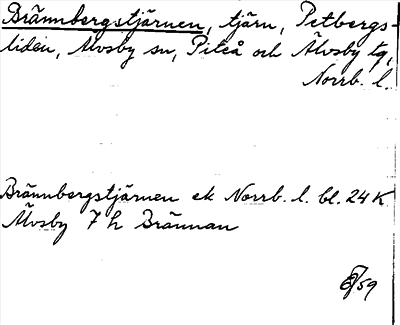 Brännbergstjärnen, tjärn, Petbergs-
liden, Älvsby sn, Piteå och Älvsby tg,
Norrb. l.
Brännbergstjärnen ek Norrb. l. bl. 24 K
Älvsby 7 h Brännan
/59